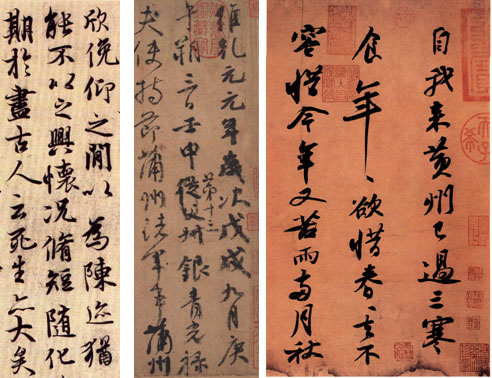 欣俛仰之閒以為陳迹猶
能不以之興懷況脩短隨化
期於盡古人云死生亦大矣
維乾元元年歲次戊戌九月庚
午朔三日壬申第十三從父銀青光祿
夫使持節蒲州諸軍事蒲州
自我來黃州已過三寒
食年〻欲惜春〻去不
容惜今年又苦雨兩月秋